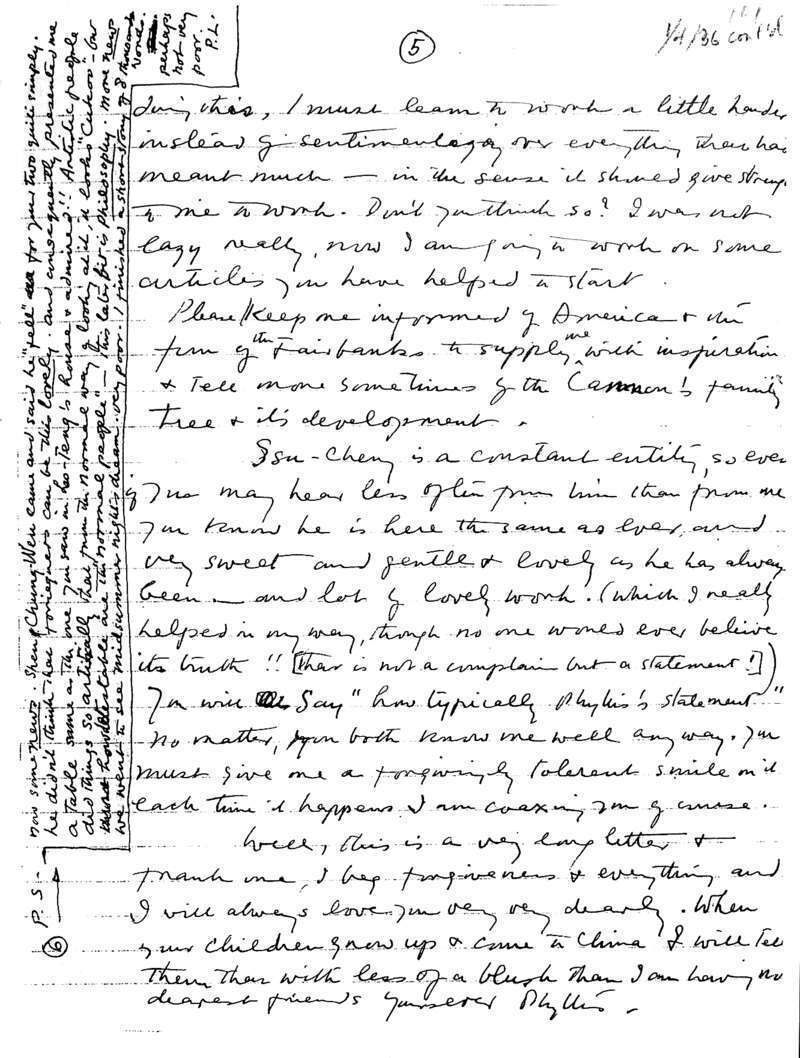 1/4/36 cont'd
5
doing this, I must learn to work a little harder
instead of sentimentalizing over everything that has
meant much — in the sense it should give strength
to me to work. Don't you think so? I was not
lazy really, now I am going to work on some
articles you have helped to start.
Please keep me informed of America & the
fun of the Fairbanks to supply me with inspiration
& tell more sometimes of the Cannon's family
tree & it's development.
Ssu-Cheng is a constant entity, so even
if you may hear less often from him than from me
you know he is here the same as ever, and
very sweet and gentle & lovely as he has always
been — and lot of lovely work. (which I really
helped in my way, though no one would ever believe
its truth!! [that is not a complain but a statement!])
You will say "how typically Phyllis's statement"
no matter, you both know me well any way. You
must give me a forgivingly tolerent smile on it
each time it happens I am coaxing you of course.
Well, this is a very long letter &
frank one, I beg forgiveness & everything and
I will always love you very very dearly. When
your children grow up & come to China I will tell
them that with less of a blush than I am having now
dearest friends yours ever Phyllis.
6
P.S.
now some news. Shen Chung-Wen came and said he "fell" for you two quite simply.
he didn't think that foreigners can be this lovely. and consequently presented me
a table same as the one you saw in Lao-Teng's house & admired!! Artistic people
did things so artistically that from the normal way of looking at it, it looks "Cukoo" — but
how detestable are the "normal people" — this later bit is philosophy. more news
we went to see midsummer night's dream. very poor. I finished a short story of 8 thousand
words.
perhaps
not very
poor.
P.L.